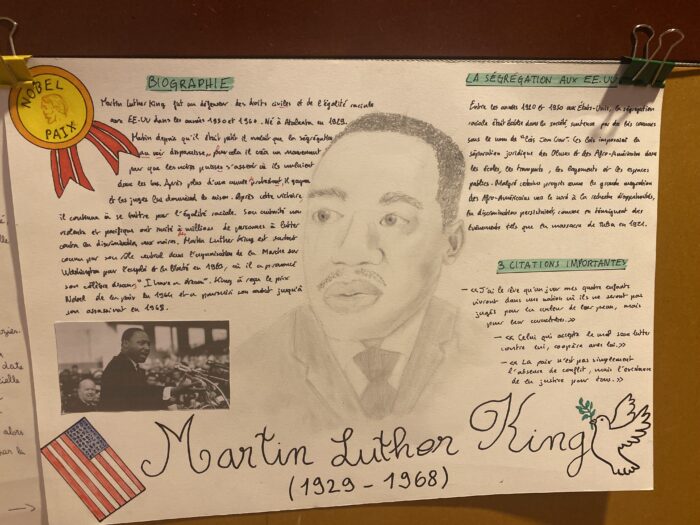 NOBEL
PAIX
BIOGRAPHIE
Martin Luther King fut un défenseur des droits civiles et de l'égalité raciale
aux EE.UU dans les années 1950 et 1960. Né à Atalanta en 1929.
Martin depuis qu'il était petit il voulait que la ségrégation
disparaisse, pour cela il créa un mouvement
pour que les noirs puisses s'asseoir où ils voulaient
dans les bus. Après plus d'un année protestant, il gagna
et les juges lui donnèrent la raison. Après cette victoire
il continua à se battre pour l'égalité raciale. Son activité non
violente et pacifique ont incité à millions de personnes à lutter
contre la discrimination aux noires. Martin Luther King est surtout
connu par son rôle central dans l'organisation de la Marche sur
Washington pour l'emploi et la liberté en 1963, où il a prononcé
son célèbre discours, "I have a dream". King a reçu le prix
Nobel de la paix en 1964 et a poursuivi son combat jusqu'à
son assassinat en 1968.
LA SÉGRÉGATION AUX EE.UU
Entre les années 1910 et 1950 aux États-Unis, la ségrégation
raciale était établie dans la société, soutenue par des lois connues
sous le nom de "Lois Jim Crow". Ces lois imposaient la
séparation juridique des Blancs et des Afro-Américains dans
les écoles, les transports, les logements et les espaces
publics. Malgré certains progrès comme la grande migration
des Afro-Américains vers le nord à la recherche d'opportunités,
la discrimination persistait, comme en témoignent des
événements tels que le massacre de Tulsa en 1921.
3 CITATIONS IMPORTANTES
- << J'ai le rêve qu'un jour mes quatre enfants
vivront dans une nation où ils ne seront pas
jugés pour la couleur de leur peau, mais
pour leur caractère. >>
- << Celui qui accepte le mal sans lutter
contre lui, coopère avec lui. >>
- << La paix n'est pas simplement
l'absence de conflit, mais l'existence
de la justice pour tous. >>
Martin Luther King
(1929 - 1968)
alors